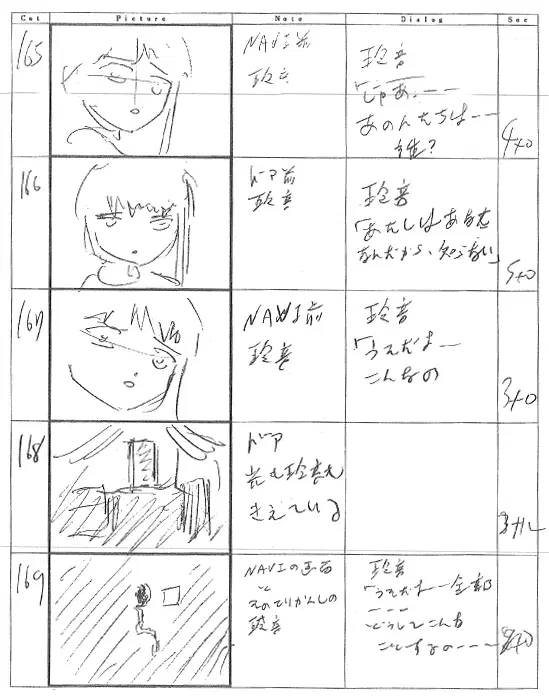 Cut Picture Note Dialog Sec
165
NAVI前
玲音
玲音
「じゃあ、――
あの人たちは――
誰?
4+0
166
ドア前
玲音
玲音
「あたしはあなた
なんだから、知らない」
5+0
167
NAVI前
玲音
玲音
「うそだよ――
こんなの
3+0
168
ドア
きえている
169
NAVIの画面
と
玲音
玲音
「うそだよ――全部
どうしてこんな
ことするの――